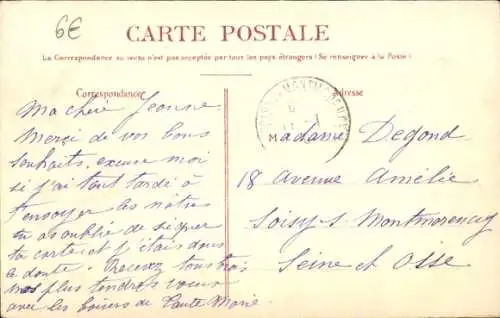 6€
CARTE POSTALE
La Correspondance au recto n'est pas acceptée par tous les pays étrangers (Se renseigner à la Poste)
Correspondance
Adresse
MONTMORENCY
Ma chère Jeanne
Merci de vos bons
souhaits. excuse moi
si j'ai tant tardé à
t'envoyer les notres
tu as oublié de signer
ta carte et j'étais dans
le doute. Recevez tous trois
nos plus tendres vœux
avec les baisers de Tante Marie
Madame Degond
18 Avenue Amélie
Soisy s. Montmorency
Seine et Oise